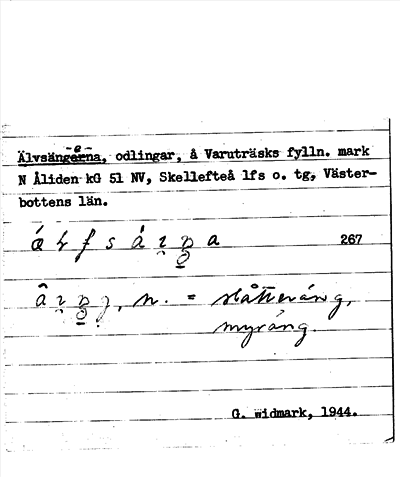 Älvsängerna, odlingar, å Varuträsks fylln. mark
N Åliden kG 51 NV, Skellefteå lfs o. tg, Väster-
bottens län.
267
n. = slåtteräng,
myräng.
G. Widmark, 1944.